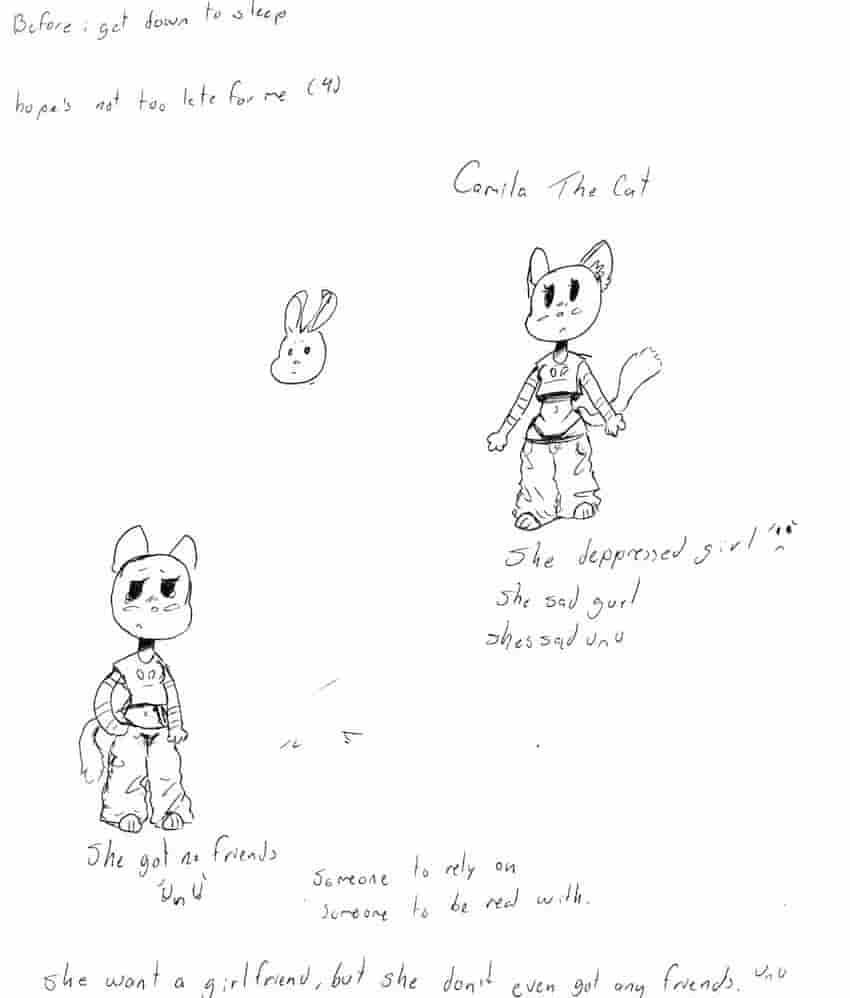 Before i get down to sleep
hope's not too late for me (4)
Camila The Cat
She deppressed girl
She sad gurl
shes sad UnU
She got no friends
UnU
Someone to rely on
someone to be real with.
she want a girlfriend, but she don't even got any friends. UnU